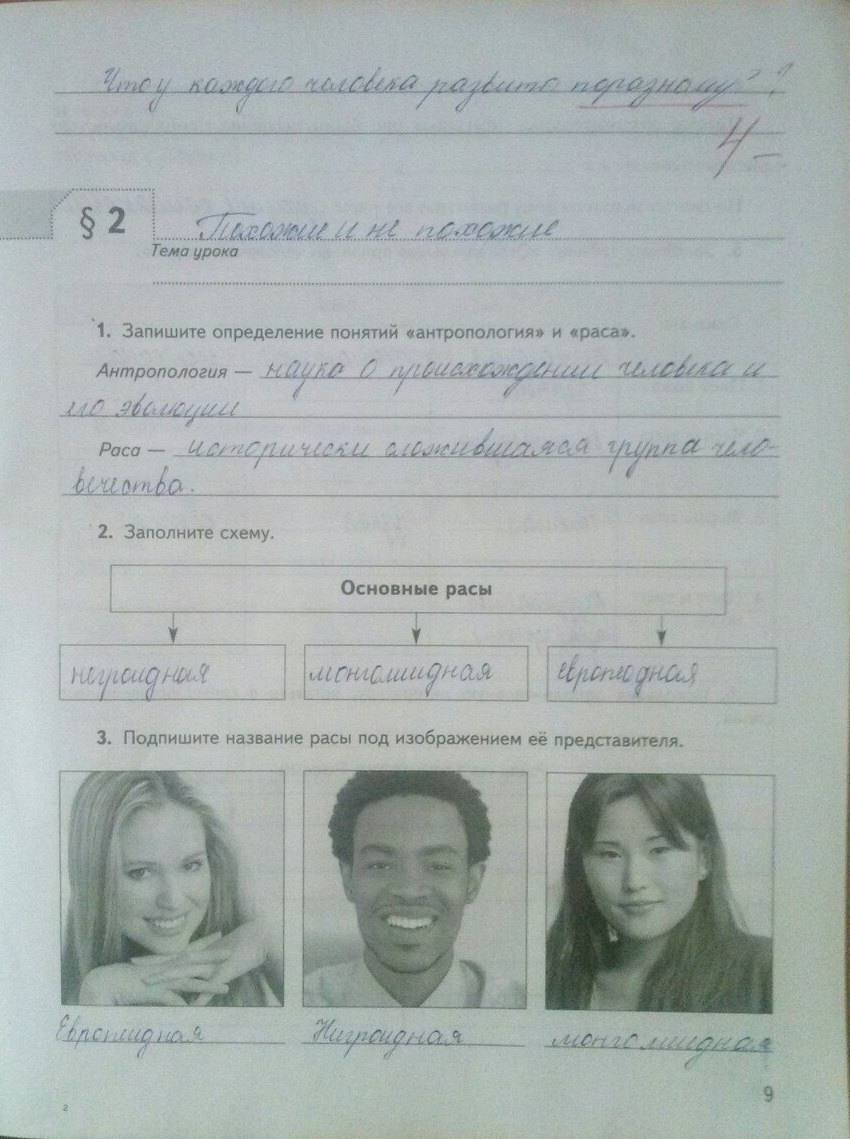 Что у каждого человека развито поразному? ?
4-
§ 2
Похожие и не похожие
Тема урока
1. Запишите определение понятий «антропология» и «раса».
Антропология — наука о происхождении человека и
его эволюции
Раса — исторически сложившаяся группа чело-
вечества.
2. Заполните схему.
Основные расы
негроидная монголоидная европеодная
3. Подпишите название расы под изображением её представителя.
Европиидная Нигроидная монголоидная
9
2